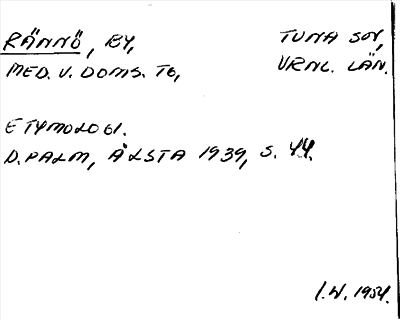 RÄNNÖ, BY, TUNA SON,
MED. V. DOMS. TG, VRNL. LÄN.
ETYMOLOGI.
D. PALM, ÅLSTA 1939, S. 44.
I.W. 1954.